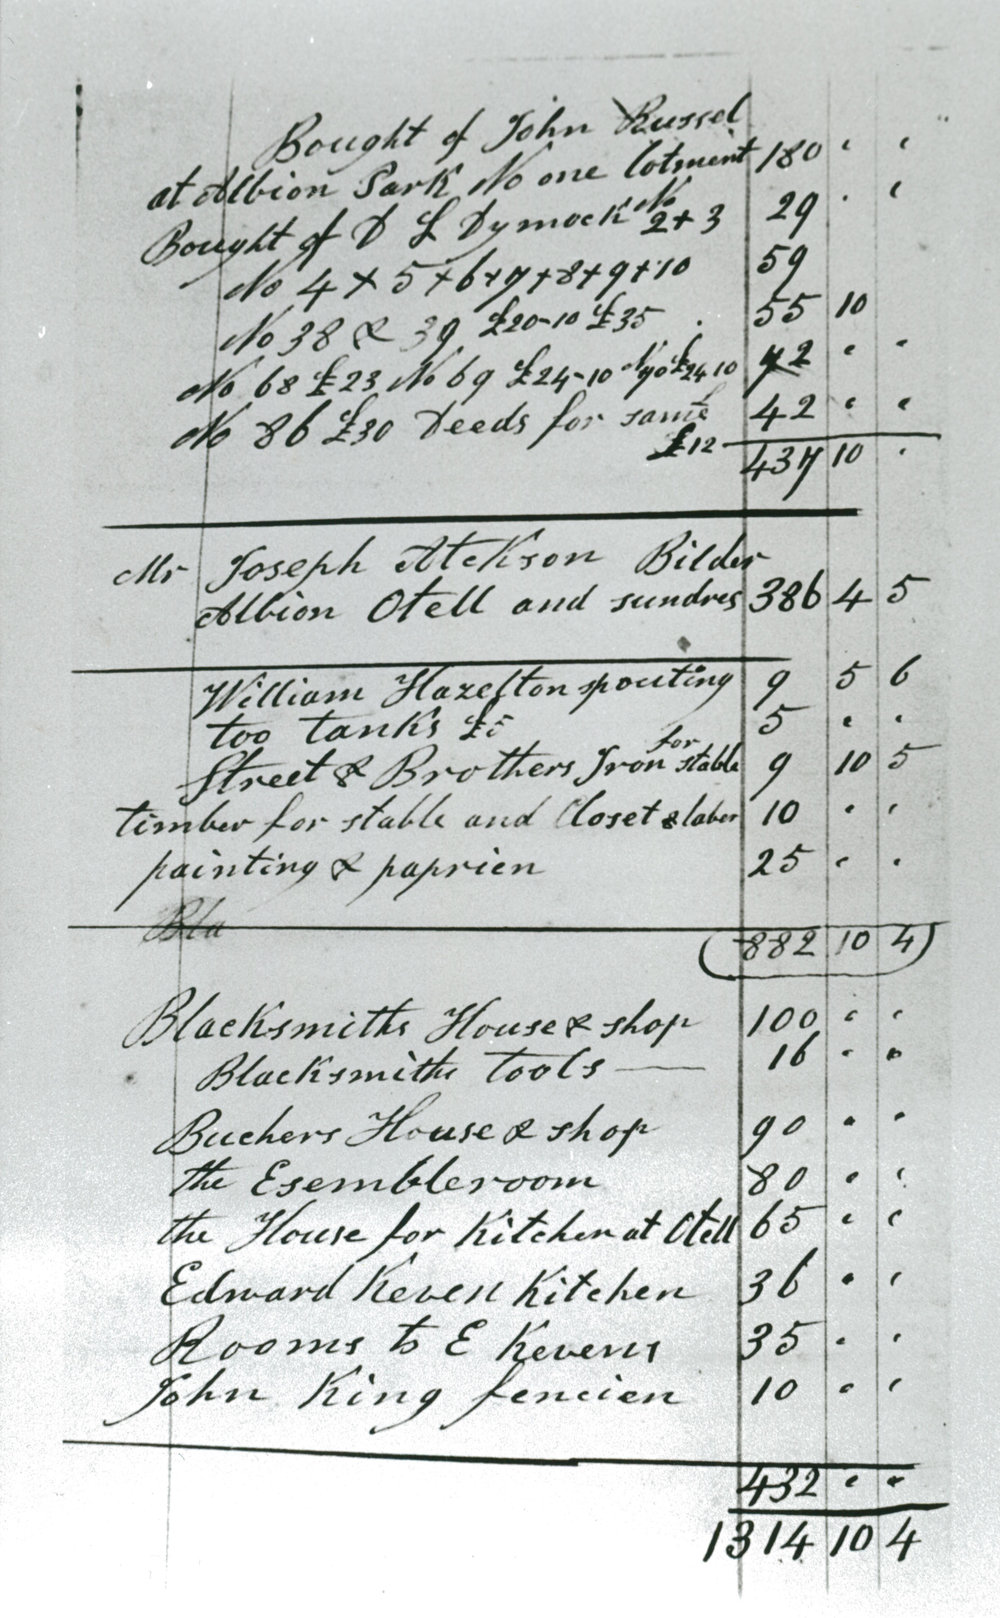 Bought of John Russel
at Albion Park No one lotment 180 " "
Bought of D L Dymock No 2+3 29 " "
No 4+5+6+7+8+9+10 59
No 38 & 39 £20-10 £35 . 55 10
No 68 £23 No 69 £24-10 No 70 £24 10 72 " "
No 86 £30 Deeds for same £12 42 " "
437 10 "
Mr Joseph Atckson Bilder
Albion Otell and sundres 386 4 5
William Hazelton spouting 9 5 6
too tanks £5 5 " "
Street & Brothers Iron for stable 9 10 5
timber for stable and Closet & laber 10 " "
painting & paprien 25 " "
Bla
882 10 4
Blacksmiths House & shop 100 " "
Blacksmiths tools — 16 " "
Buchers House & shop 90 " "
the Esembleroom 80 " "
the House for Kitchen at Otell 65 " "
Edward Keven Kitchen 36 " "
Rooms to E Kevens 35 " "
John King fencien 10 " "
432 " "
1314 10 4